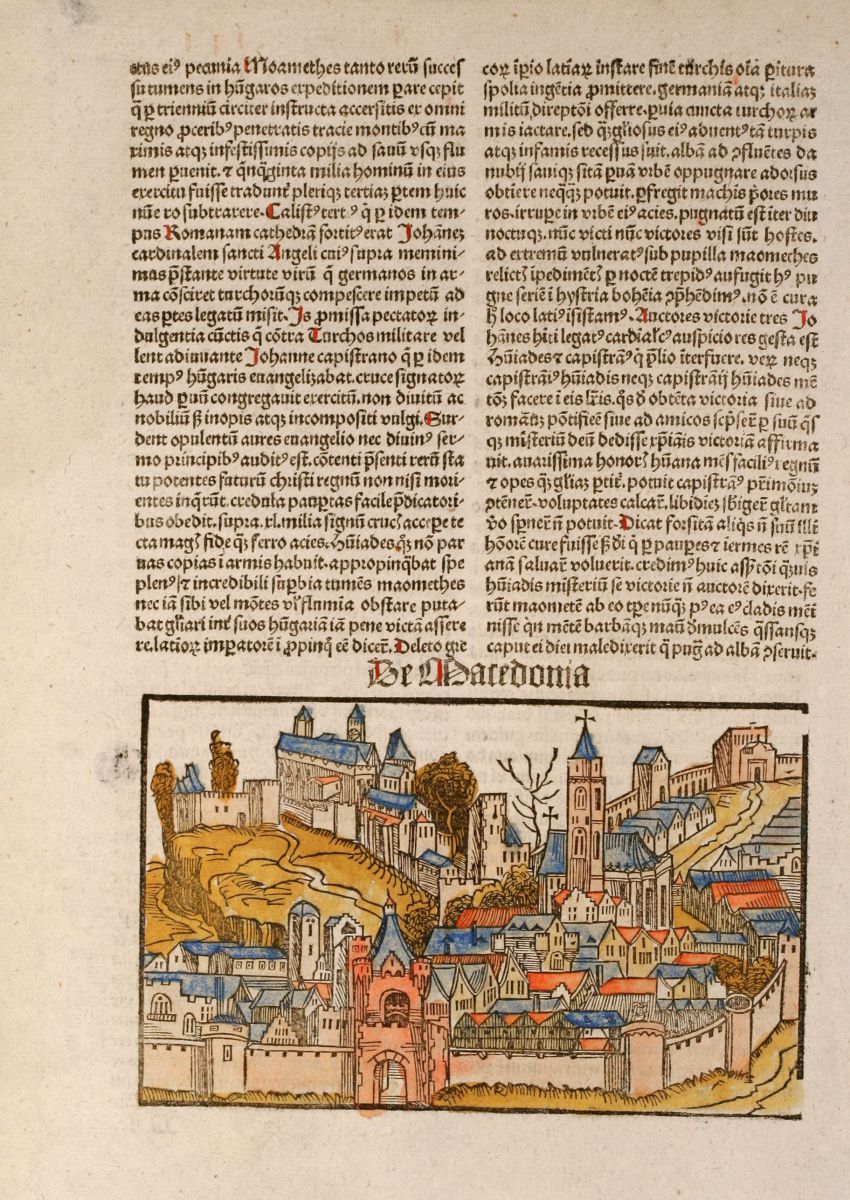 ctus eiꝰ pecunia Moamethes tanto rerū succes
su tumens in hūgaros expeditionem ꝑare cepit
q̄ ꝑ trienniū circiter instructa accersitis ex omni
regno ꝓceribꝰ penetratis tracie montibꝰ cū ma
ximis atqꝫ infestissimis copijs ad sauū vsqꝫ flu
men ꝑuenit. ⁊ qn̄qꝫginta milia hominū in eius
exercitu fuisse tradunt pleriqꝫ tertiaꝫ ꝑtem huic
nūe ro subtraxere. Calistꝰ tertꝰ q̄ ꝑ idem tem
pus Romanam cathedrā sortitꝰ erat Johānez
cardinalem sancti Angeli cuiꝰ supra memini
mus p̄stante virtute virū q̄ germanos in ar
ma cōsciret turchorūqꝫ compescere impetū ad
eas ꝑtes legatū misit. Is ꝓmissa peccatoꝝ in
dulgentia cūctis q̄ cōtra Turchos militare vel
lent adiuuante Johanne capistrano q̄ ꝑ idem
tempꝰ hūgaris euangelizabat. cruce signatoꝝ
haud ꝑuū congregauit exercitū. non diuitū ac
nobiliū sꝫ inopis atqꝫ incompositi vulgi. Sur
dent opulentū aures euangelio nec diuinꝰ ser
mo principibꝰ auditꝰ est. cōtenti p̄senti rerū sta
tu potentes futurū christi regnū non nisi mori
entes inq̄runt. credula paupertas facile p̄dicatori
bus obedit. supra. xl. milia signū crucꝭ accepe te
cta magꝭ fide qꝫ ferro acies. Hūiades qꝫ nō par
uas copias i armis habuit. appropinq̄bat spe
plenꝰ ⁊ incredibili suꝑbia tumēs maomethes
nec iā sibi vel mōtes vl̓ flumia obstare puta-
bat gl̓iari int̓ suos hūgariā iā pene victā assere
re. latioꝝ imꝑatorē i ꝓpinq̄ eē dicer̄. Deleto gre
coꝝ iꝑio latiaꝝ instare finē turchis oīa ꝑitura
spolia ingētia ꝓmittere. germaniā atqꝫ italiaꝫ
militū direptōi offerre. ꝑuia cuncta turchoꝝ ar
mis iactare. sed qꝫ gl̓iosus eiꝰ aduentꝰ tā turpis
atqꝫ infamis recessus fuit. albā ad ꝯfluētes da
nubij sauiqꝫ sitā ꝑuā vrbē oppugnare adorsus
obtiere neqꝫ potuit. ꝑfregit machīs p̄ores mu
ros. irrupe in vrbē eiꝰ acies. pugnatū est iter diu
noctuqꝫ. nūc victi nūc victores visi sūt hostes.
ad extremū vulneratꝰ sub pupilla maomethes
relictꝭ ipedimētꝭ ꝑ noctē trepidꝰ aufugit hꝰ pu
gne seriē i hystria bohēia ꝯp̄hēdimꝰ. nō ē cura
h̄ loco latiꝰ isistamꝰ. Auctores victorie tres Jo
hānes hīti legatꝰ cardial̓. cꝰ auspicio res gesta est
Hūiades ⁊ capistrāꝰ q̄ p̄lio īterfuere. veꝝ neqꝫ
capistrāiꝰ hūiadis neqꝫ capistrāij hūiades mē
tōꝫ facere i eis lr̄is. q̄s d̓ obtēta victoria siue ad
romanū pōtificē siue ad amicos scp̄ser̄ ꝑ suū q̄s
qꝫ misteriū deū dedisse xp̄iāis victoriā affirma
uit. auarissima honorꝭ hūana mēs faciliꝰ regnū
⁊ opes qꝫ gl̓iaꝫ ꝑtit̄. potuit capistrāꝰ p̄rimōiuꝫ
ꝯtēner̄. voluptates calcar̄. libidieꝫ sb̓iger̄ gl̓iam
v̓o spner̄ n̄ potuit. Dicat forsitā aliq̄s n̄ suū illī
hōrē cure fuisse sꝫ d̓i q̄ ꝑ pauꝑes ⁊ iermes rē xp̄i
anā saluar̄ voluerit. credimꝰ huic assꝭtōi qꝫuis
hūiadis misteriū se victorie n̄ auctorē dixerit. fe
rūt maometē ab eo tꝑe nūqꝫ pꝰ ea eꝰ cladis mēi
nisse qn̄ mētē barbāqꝫ manū d̓mulcēs q̄ssansqꝫ
caput ei diei maledixerit q̄ pugꝫ ad albā ꝯseruit.
De Macedonia